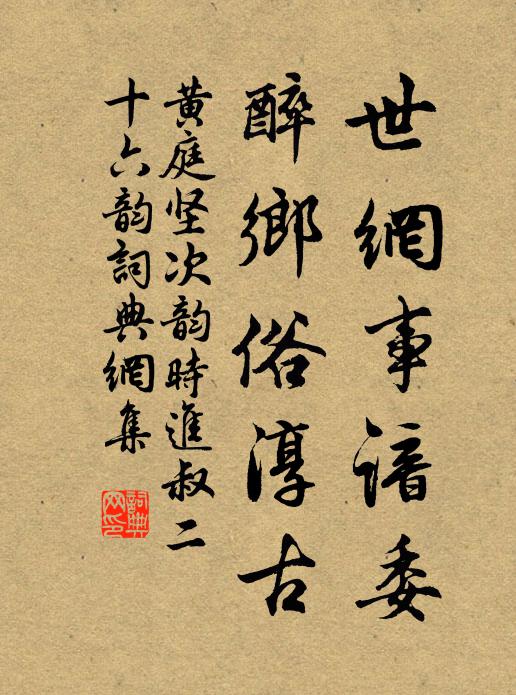 世網事諳委
醉鄉俗淳古
黄庭坚次韵時進叔二
十六韵詞典網集